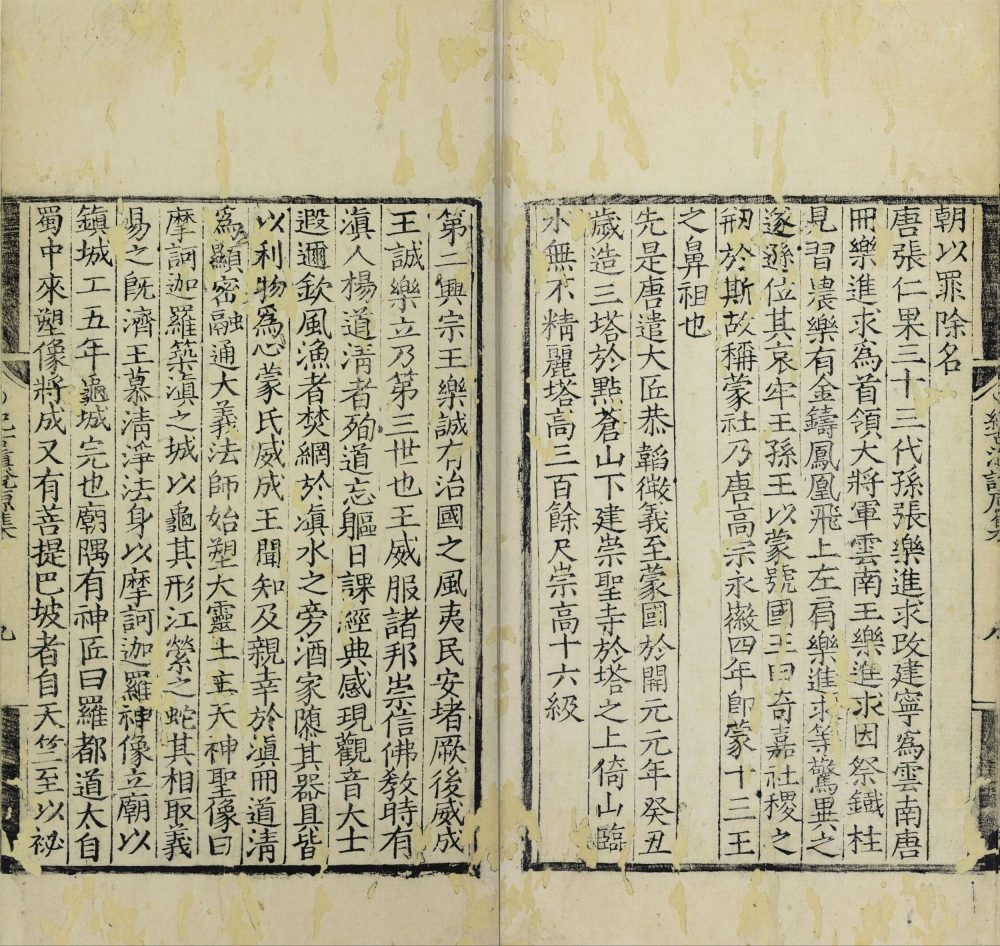 朝以罪除名
唐張仁果三十三代孫張樂進求改建寧爲雲南唐
冊樂進求爲首領大將軍雲南王樂進求因祭鐵柱
見習濃樂有金鑄鳳凰飛上左肩樂進求等驚異之
遂遜位其哀牢王孫王以蒙號國王曰奇嘉社稷之
刱於斯故稱蒙社乃唐高宗永徽四年卽蒙十三王
之鼻祖也
先是唐遣大匠恭韜徽義至蒙國於開元元年癸丑
歲造三塔於點蒼山下建崇聖寺於塔之上倚山臨
水無不精麗塔高三百餘尺崇高十六級
第二興宗王樂誠有治國之風夷民安堵厥後威成
王誠樂立乃第三世也王威服諸邦崇信佛教時有
滇人楊道清者殉道忘軀日課經典感現觀音大士
遐邇欽風漁者焚網於滇水之旁酒家隳其器具皆
以利物爲心蒙氏威成王聞知及親幸於滇冊道清
爲顯密融通大義法師始塑大靈土主天神聖像曰
摩訶迦羅築滇之城以龜其形江縈之蛇其相取義
易之旣濟王慕清淨法身以摩訶迦羅神像立廟以
鎮城工五年龜城完也廟隅有神匠曰羅都道太自
蜀中來塑像將成又有菩提巴坡者自天竺至以祕
九